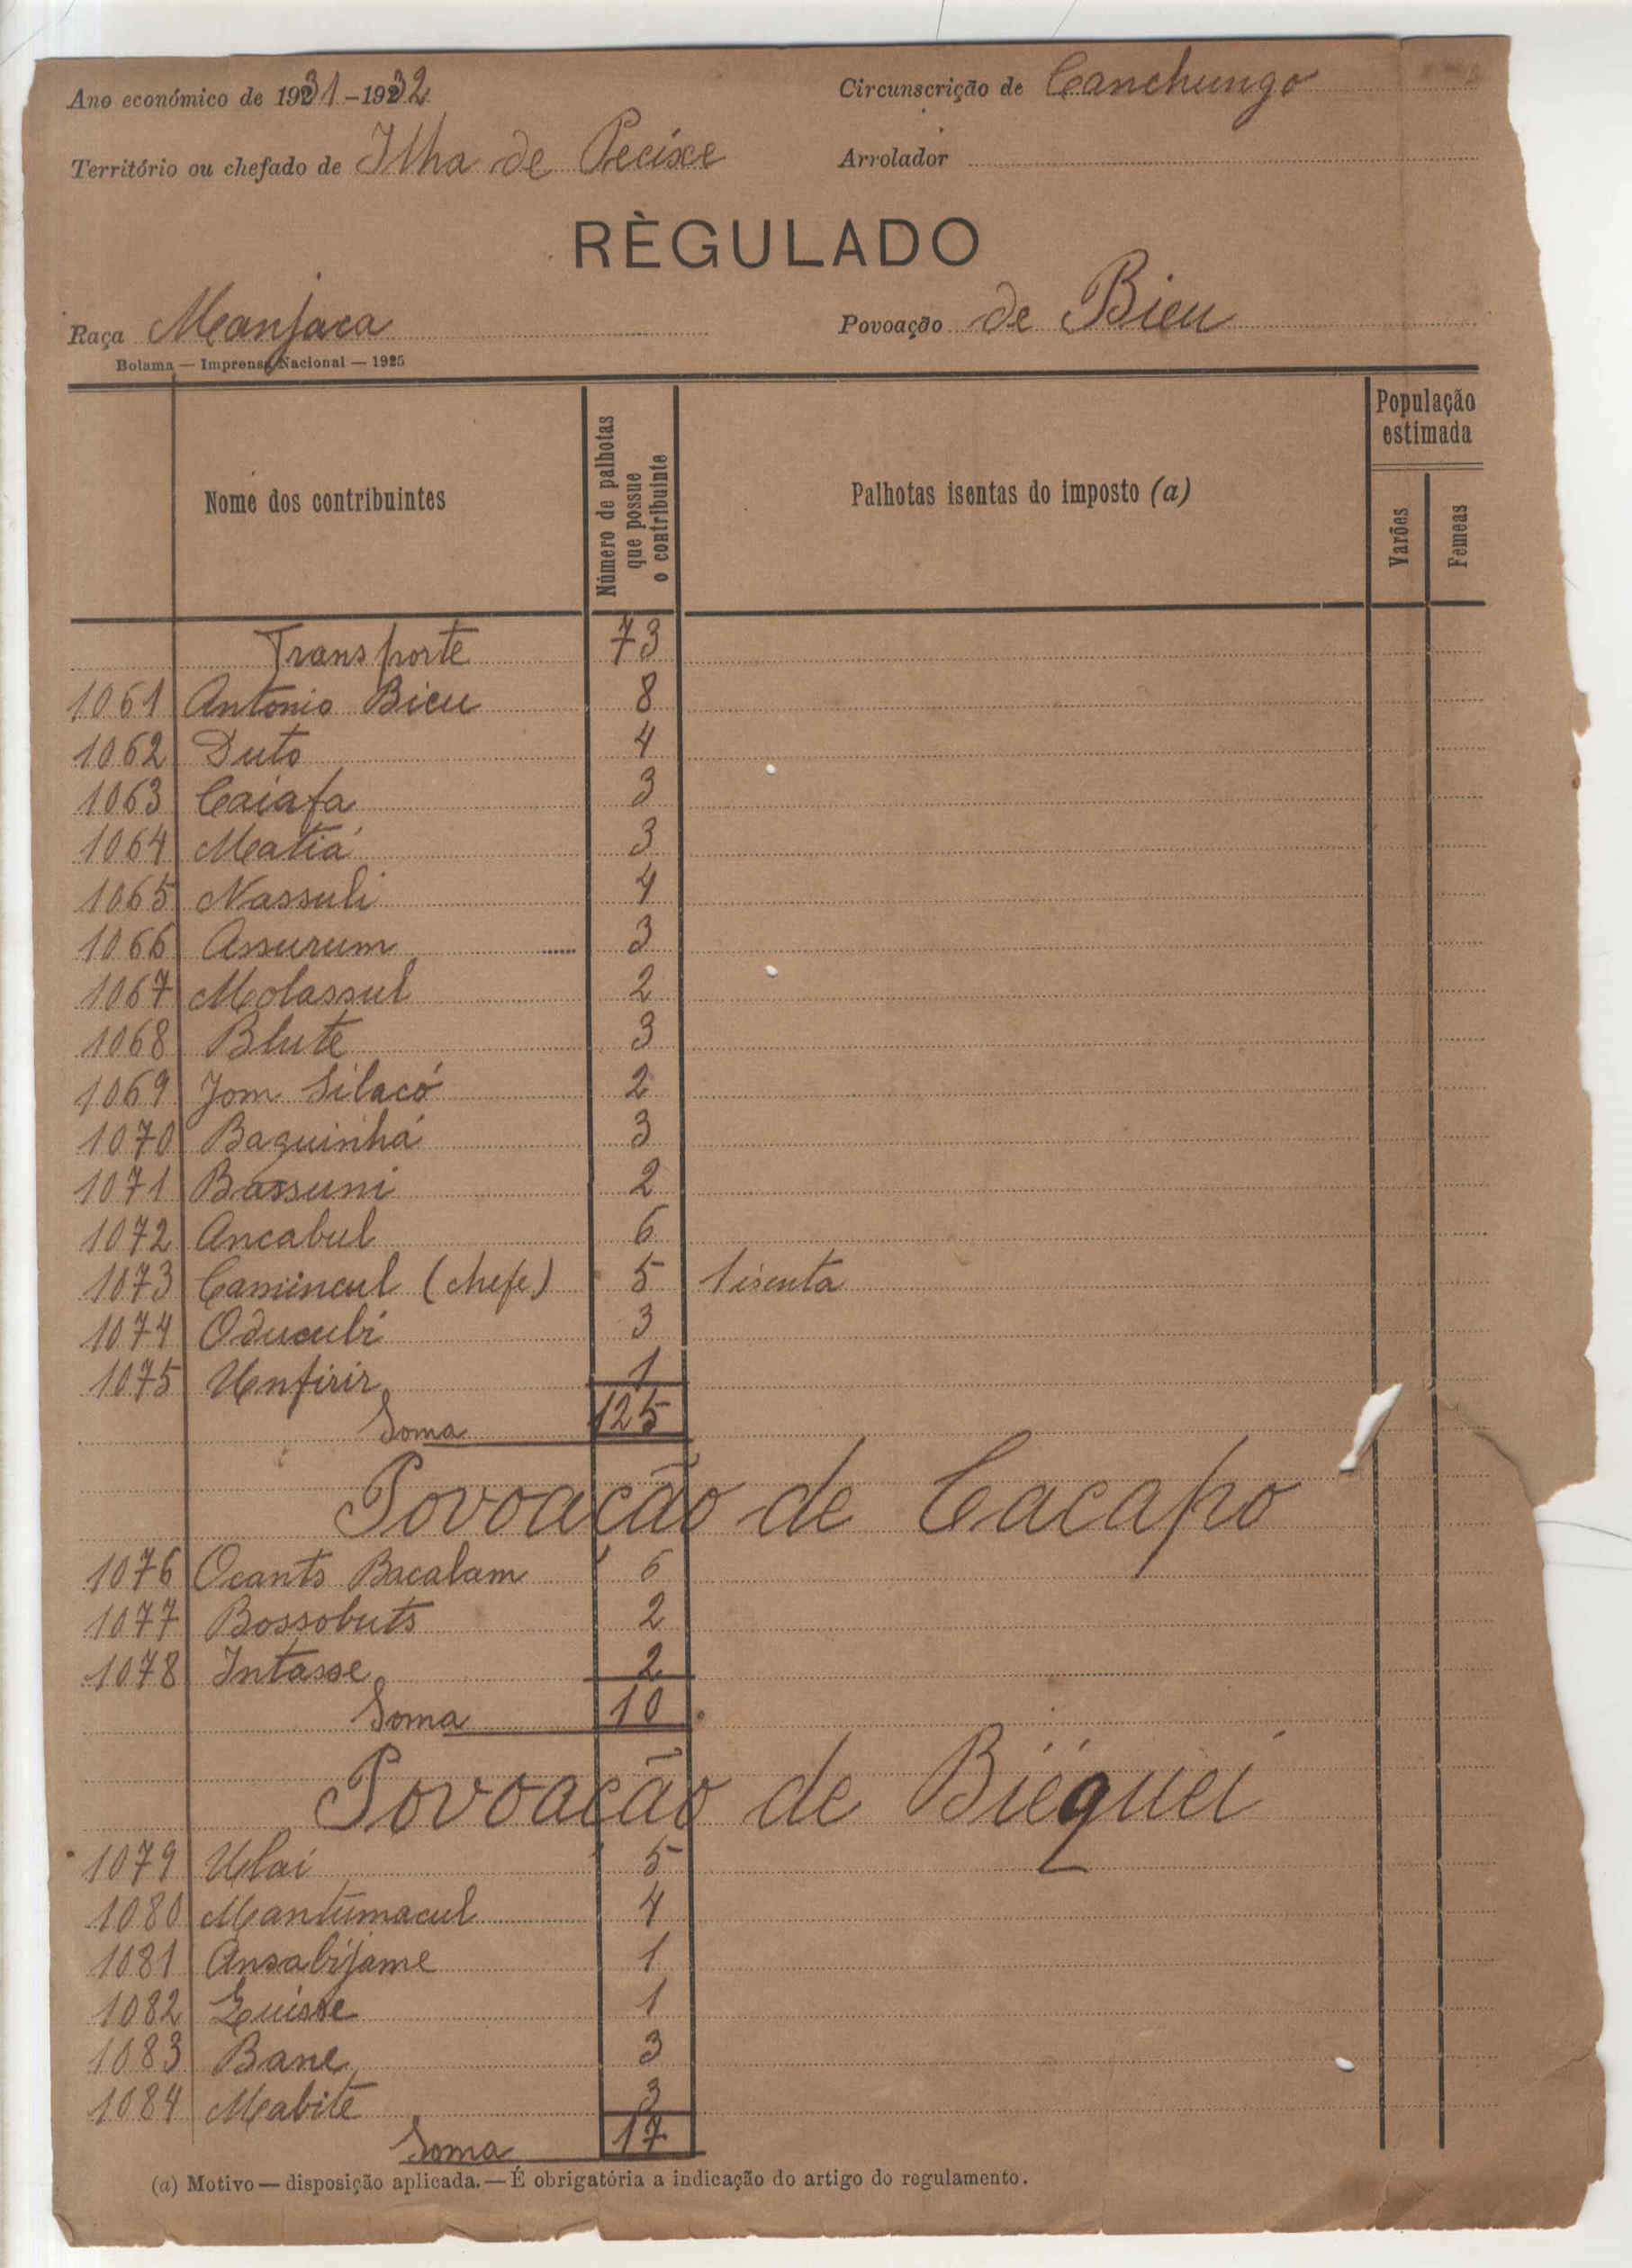 Ano económico de 1931-1932
Circunscrição de Canchungo
Território ou chefado de Ilha de Pecixe
Arrolador
RÈGULADO
Raça Manjaca
Povoação de Bieu
Bolama — Imprensa Nacional — 1925
Nome dos contribuintes
Número de palhotas que possue o contribuinte
Palhotas isentas do imposto (a)
População estimada
Varões
Femeas
Transporte 73
1061 Antonio Bieu 8
1062 Duto 4
1063 Caiafa 3
1064 Matiá 3
1065 Nassuli 4
1066 Assurum 3
1067 Molassul 2
1068 Blute 3
1069 Jom Silacó 2
1070 Baquinhá 3
1071 Bassuni 2
1072 Ancabul 6
1073 Camincul (chefe) 5 1 isenta
1074 Oducubi 3
1075 Unfirir 1
Soma 125
Povoação de Cacapo
1076 Ocanto Bacalam 6
1077 Bossobuts 2
1078 Intasse 2
Soma 10
Povoação de Biéquei
1079 Ulai 5
1080 Mantumacul 4
1081 Ansabijame 1
1082 Luisse 1
1083 Bane 3
1084 Mabite 3
Soma 17
(a) Motivo — disposição aplicada. — É obrigatória a indicação do artigo do regulamento.